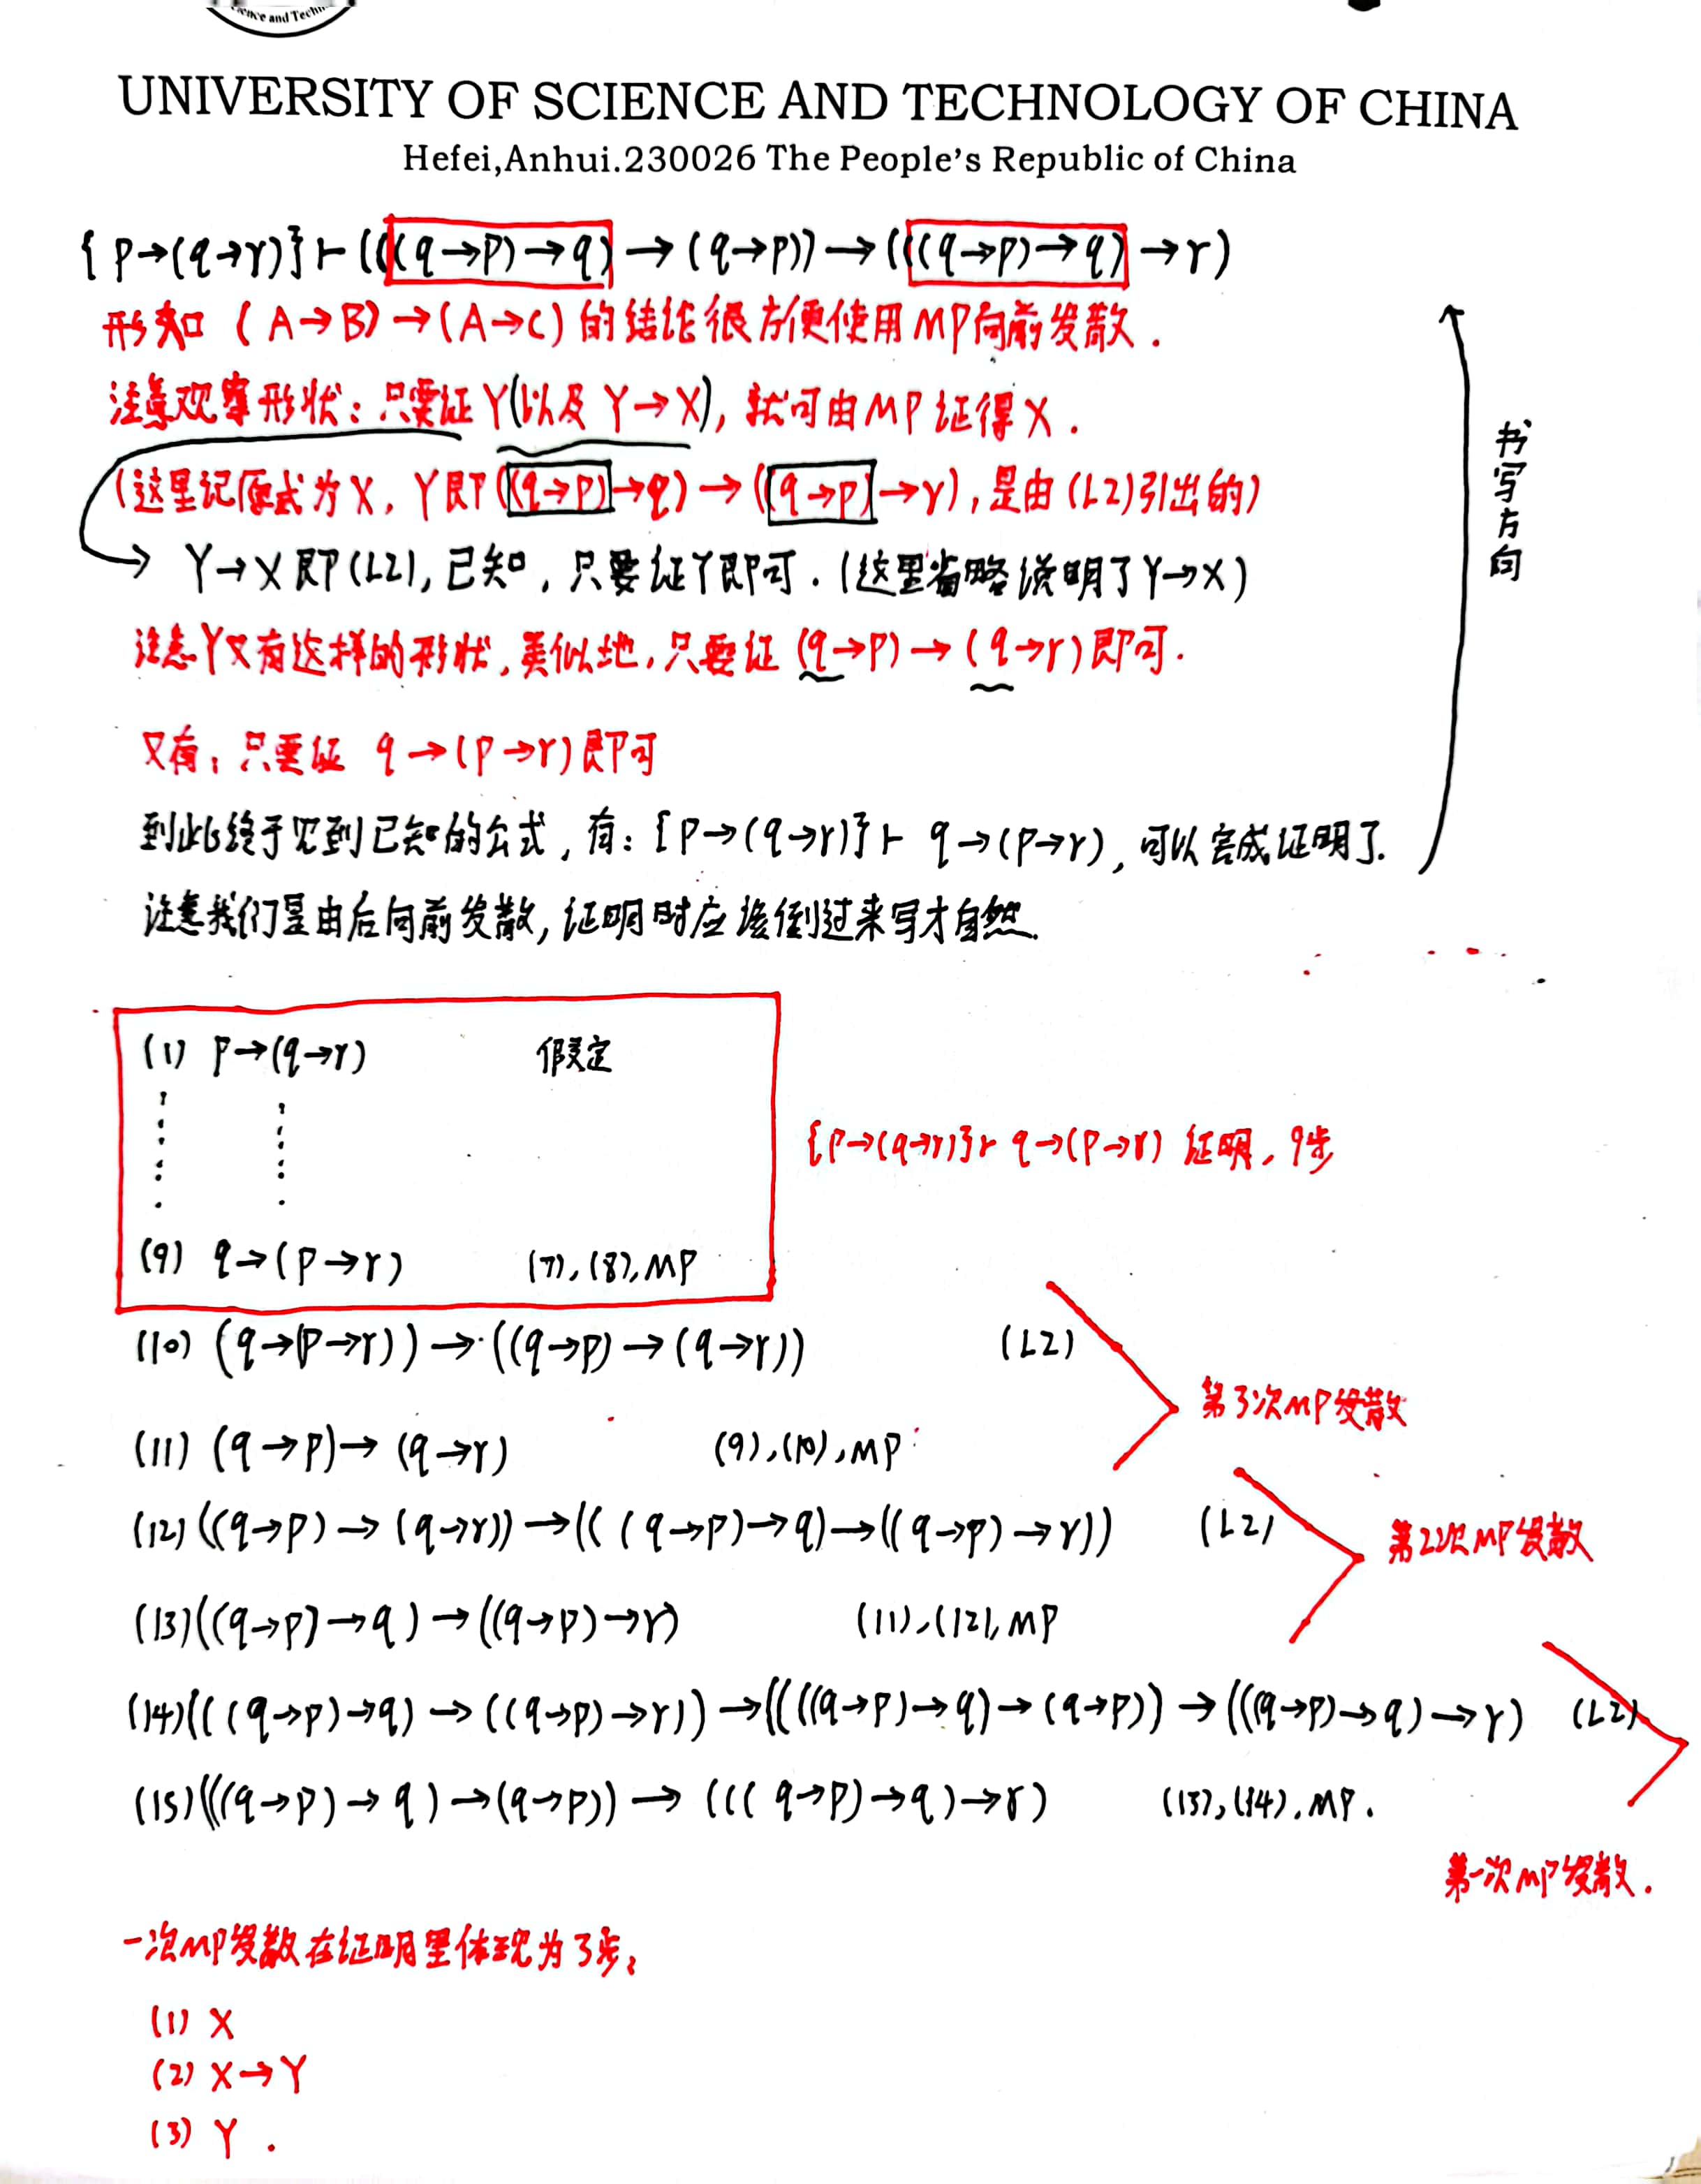 ience and Techn
UNIVERSITY OF SCIENCE AND TECHNOLOGY OF CHINA
Hefei,Anhui.230026 The People's Republic of China
{p→(q→r)}⊢(((q→p)→q)→(q→p))→(((q→p)→q)→r)
形如 (A→B)→(A→C)的结论很方便使用MP向前发散.
注意观察形状:只要证Y(以及Y→X),就可由MP证得X.
(这里记原式为X, Y即((q→p)→q)→((q→p)→r),是由(L2)引出的)
→ Y→X即(L2),已知,只要证Y即可.(这里省略说明了Y→X)
注意Y又有这样的形状,类似地,只要证(q→p)→(q→r)即可.
又有,只要证 q→(p→r)即可
到此终于见到已知的公式,有:{p→(q→r)}⊢ q→(p→r),可以完成证明了.
注意我们是由后向前发散,证明时应该倒过来写才自然.
书写方向
(1) p→(q→r) 假定
{p→(q→r)}⊢ q→(p→r) 证明,9步
(9) q→(p→r) (7),(8),MP
(10) (q→(p→r))→((q→p)→(q→r)) (L2)
第3次MP发散
(11) (q→p)→(q→r) (9),(10),MP
(12)((q→p)→(q→r))→(((q→p)→q)→((q→p)→r)) (L2)
第2次MP发散
(13)((q→p)→q)→((q→p)→r) (11),(12),MP
(14)(((q→p)→q)→((q→p)→r))→((((q→p)→q)→(q→p))→(((q→p)→q)→r) (L2)
(15)(((q→p)→q)→(q→p))→(((q→p)→q)→r) (13),(14),MP.
第一次MP发散.
一次MP发散在证明里体现为3步:
(1) X
(2) X→Y
(3) Y.